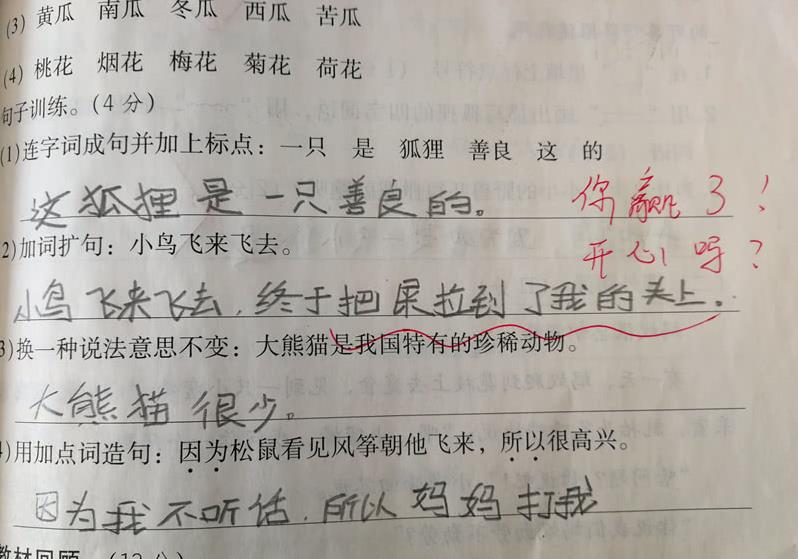 (3) 黄瓜 南瓜 冬瓜 西瓜 苦瓜
(4) 桃花 烟花 梅花 菊花 荷花
句子训练。(4分)
(1)连字词成句并加上标点：一只 是 狐狸 善良 这 的
这狐狸是一只善良的。
你赢了！
2)加词扩句：小鸟飞来飞去。
开心吗？
小鸟飞来飞去，终于把屎拉到了我的头上。
3)换一种说法意思不变：大熊猫是我国特有的珍稀动物。
大熊猫很少。
4)用加点词造句：因为松鼠看见风筝朝他飞来，所以很高兴。
因为我不听话，所以妈妈打我
教材回顾 (12分)